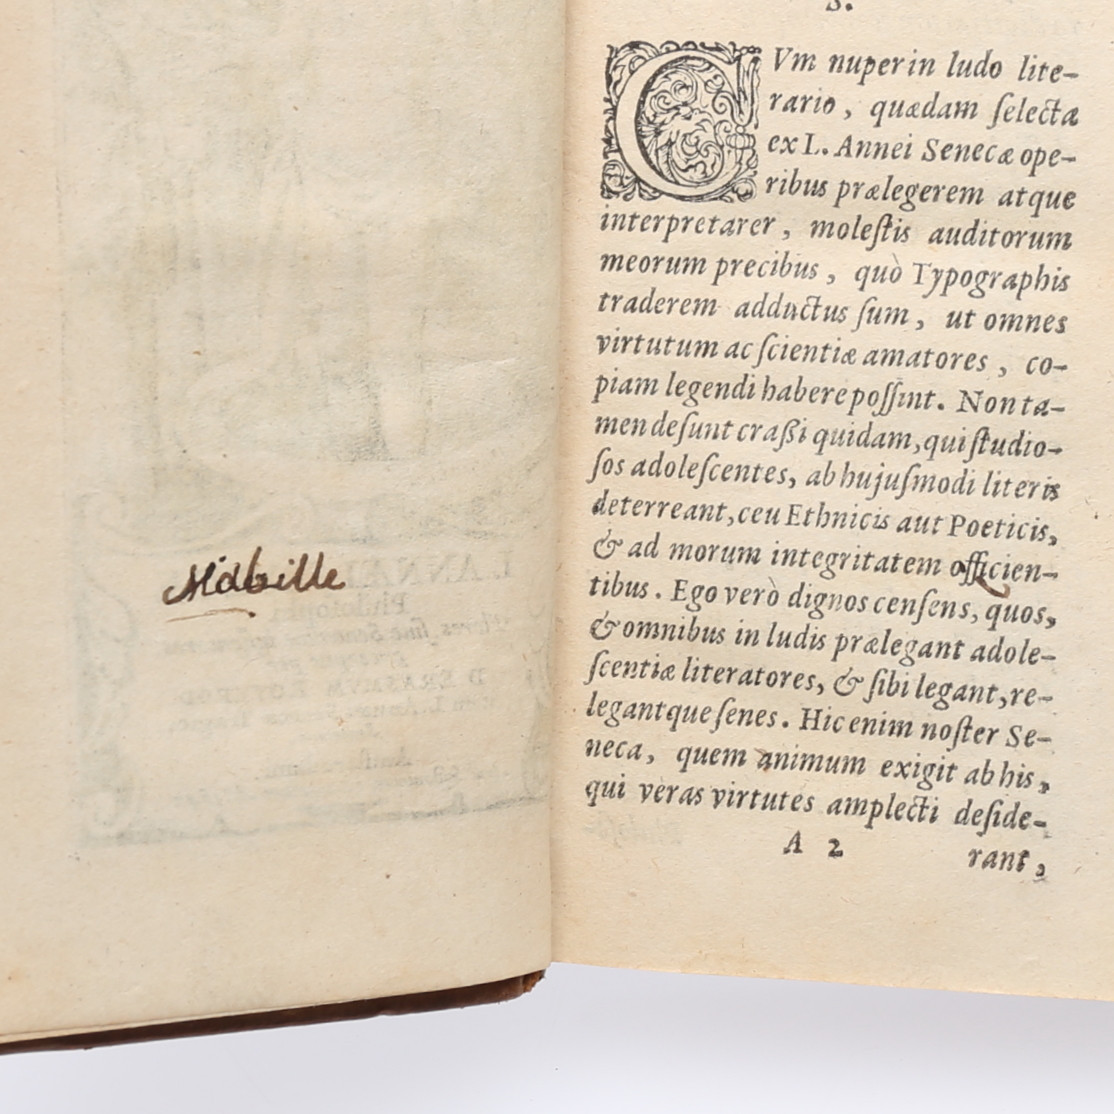 Mabille
S.
CVm nuper in ludo lite-
rario, quædam ſelecta
ex L. Annei Senecæ ope-
ribus prælegerem atque
interpretarer, moleſtis auditorum
meorum precibus, quò Typographis
traderem adductus ſum, ut omnes
virtutum ac ſcientiæ amatores, co-
piam legendi habere poſſint. Non ta-
men deſunt craßi quidam, qui ſtudio-
ſos adoleſcentes, ab hujuſmodi literis
deterreant, ceu Ethnicis aut Poeticis,
& ad morum integritatem officien-
tibus. Ego verò dignos cenſens, quos,
& omnibus in ludis prælegant adole-
ſcentiæ literatores, & ſibi legant, re-
legantque ſenes. Hic enim noſter Se-
neca, quem animum exigit ab his,
qui veras virtutes amplecti deſide-
A 2 rant,